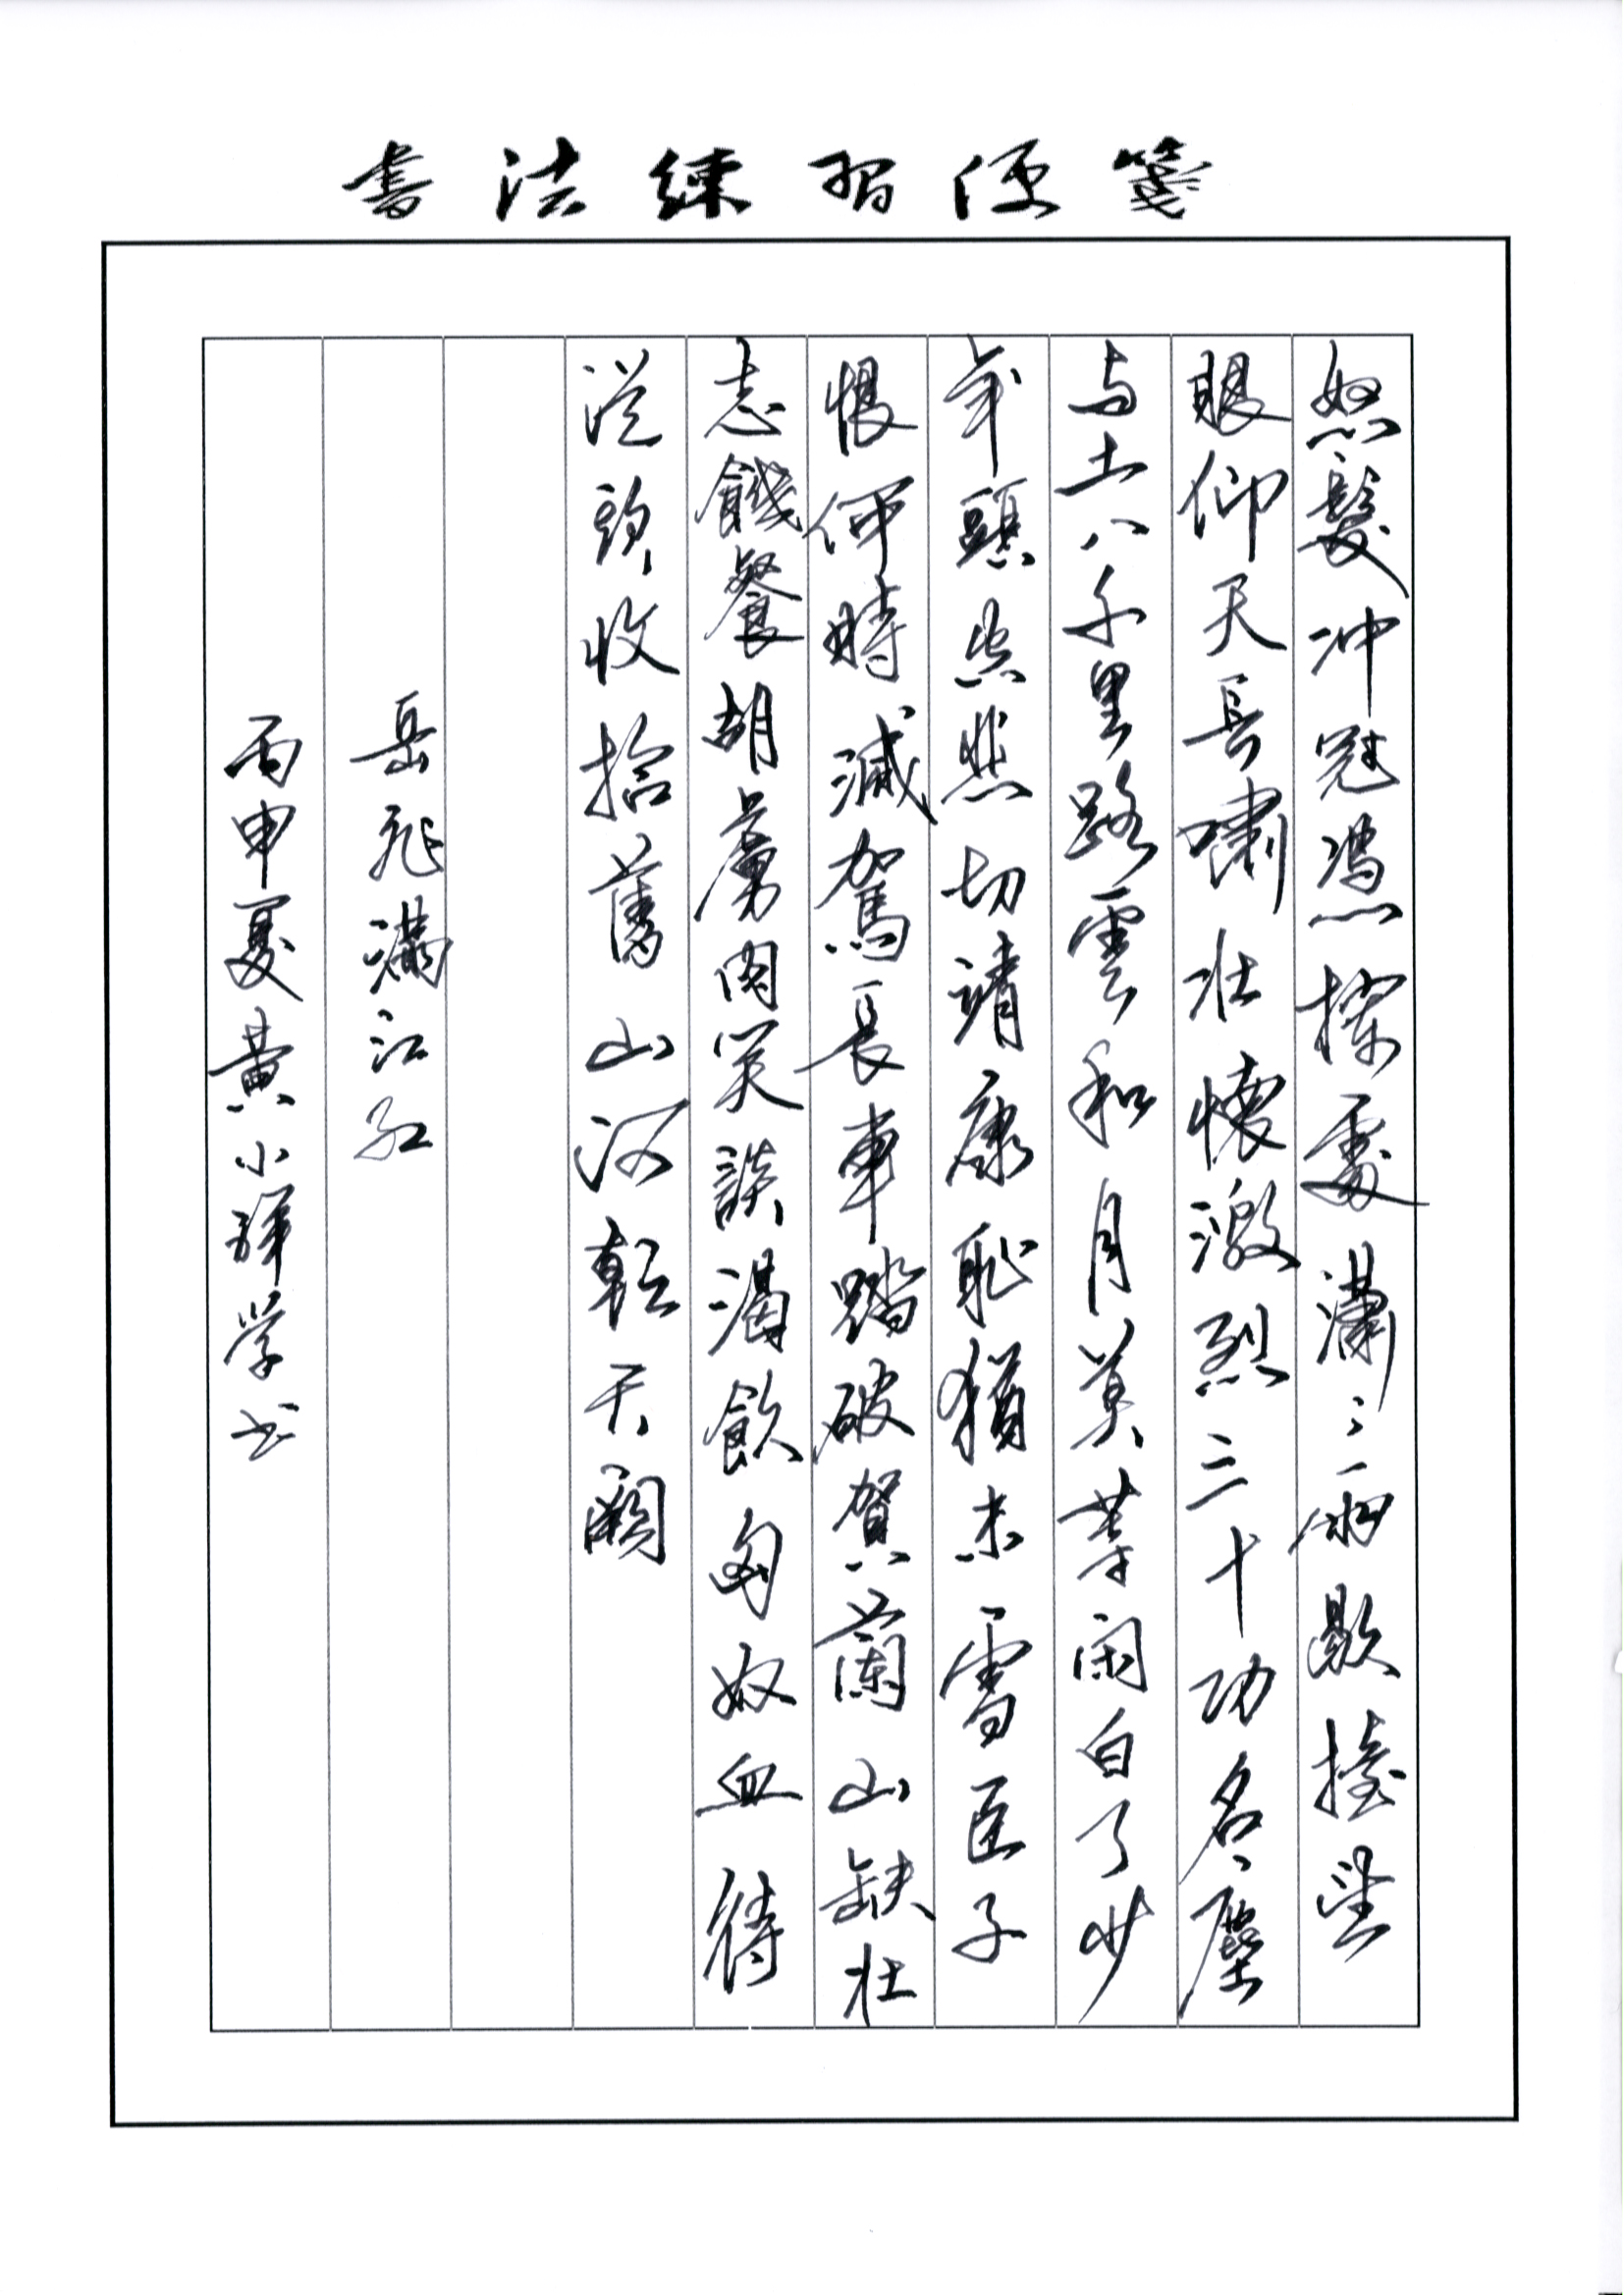 書法練習便箋
怒髮冲冠憑欄處瀟〻雨歇擡望
眼仰天長嘯壯懷激烈三十功名塵
与土八千里路雲和月莫等闲白了少
年頭空悲切靖康恥猶未雪臣子
恨何時滅駕長車踏破賀蘭山缺壯
志饑餐胡虜肉笑談渴飲匈奴血待
從頭收拾舊山河朝天闕
岳飛滿江紅
丙申夏黃小輝学书